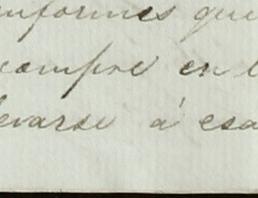 informes que
siempre en l
levarse á esa